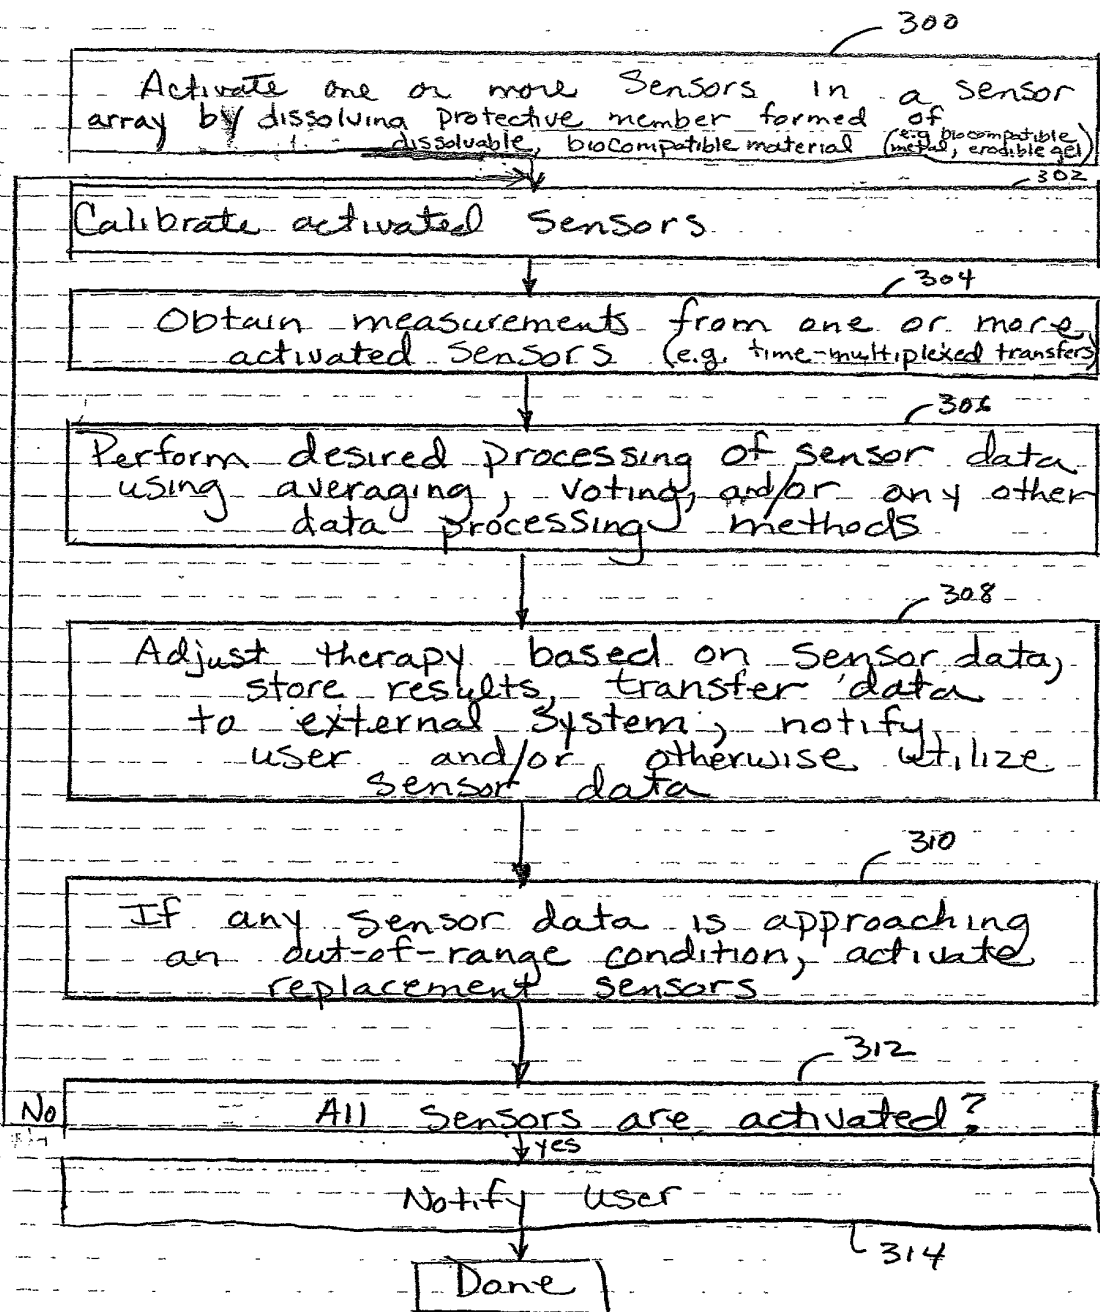 300
Activate one or more Sensors in a sensor
array by dissolving protective member formed of
dissolvable, biocompatible material (e.g. biocompatible
metal, erodible gel)
302
Calibrate activated sensors
304
Obtain measurements from one or more
activated sensors (e.g. time-multiplexed transfers)
306
Perform desired processing of sensor data
using averaging, voting, and/or any other
data processing methods
308
Adjust therapy based on sensor data,
store results, transfer data
to external system, notify
user and/or otherwise utilize
sensor data
310
If any sensor data is approaching
an out-of-range condition, activate
replacement sensors
312
No All sensors are activated?
yes
Notify user
314
Done